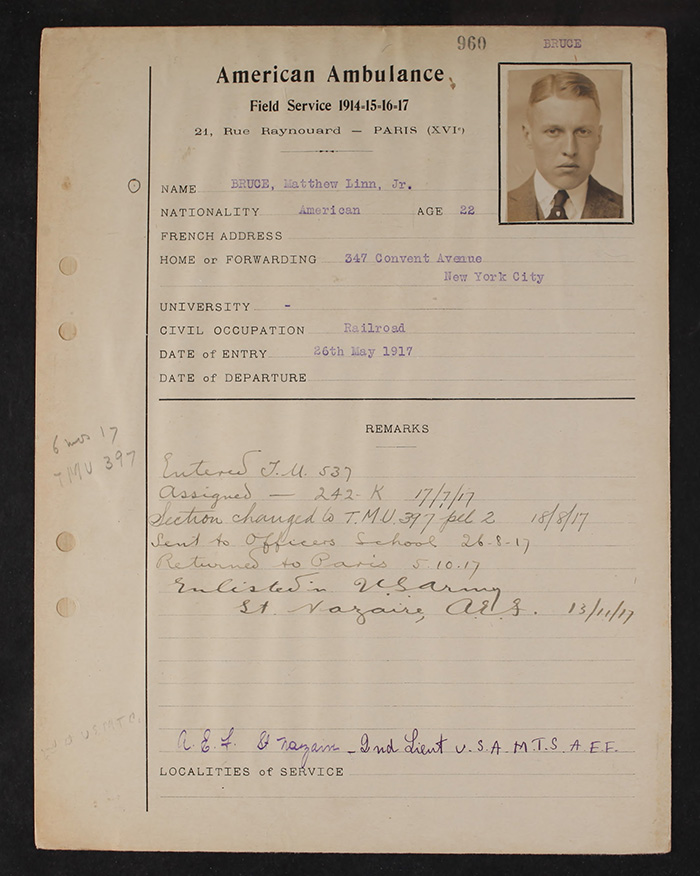 960 BRUCE
American Ambulance
Field Service 1914-15-16-17
21, Rue Raynouard — PARIS (XVIe)
NAME BRUCE, Matthew Linn, Jr.
NATIONALITY American AGE 22
FRENCH ADDRESS
HOME or FORWARDING 347 Convent Avenue
New York City
UNIVERSITY -
CIVIL OCCUPATION Railroad
DATE of ENTRY 26th May 1917
DATE of DEPARTURE
REMARKS
6 mos 17
TMU 397
Entered T.U. 537
Assigned — 242-K 17/7/17
Section changed to T.M.U. 397 pel 2 18/8/17
Sent to Officers School 26-8-17
Returned to Paris 5.10.17
Enlisted in U.S. Army
St. Nazaire, A.E.F. 13/11/17
U.S.M.T.C.
A.E.F. St Nazaire - 2nd Lieut U.S.A. M.T.S. A.E.F.
LOCALITIES of SERVICE